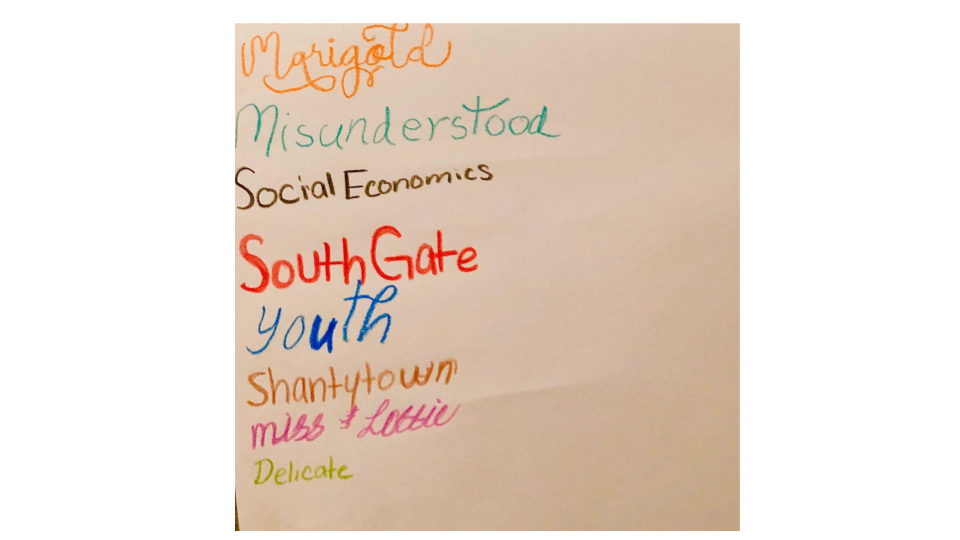 Marigold
Misunderstood
Social Economics
South Gate
youth
Shantytown
miss & Lottie
Delicate